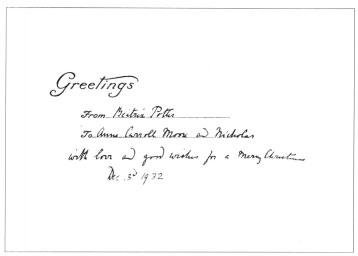 Greetings
From Beatrix Potter
To Anne Carroll Moore and Nicholas
with love and good wishes for a Merry Christmas
Dec. 3d 1932